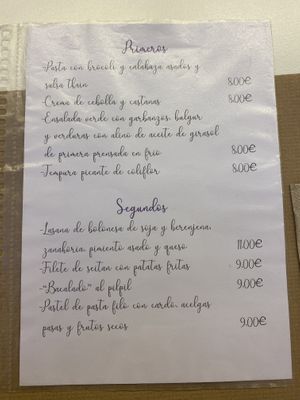 Primeros
-Pasta con brócoli y calabaza asados y
salsa thun 8.00€
-Crema de cebolla y castanas 8.00€
-Ensalada verde con garbanzos, bulgur
y verduras con alino de aceite de girasol
de primera prensada en frio 8.00€
-Tempura picante de coliflor 8.00€
Segundos
-Lasana de bolonesa de soja y berenjena,
zanahoria, pimiento asado y queso 11.00€
-Filete de seitan con patatas fritas 9.00€
-"Bacalado" al pilpil 9.00€
-Pastel de pasta filo con cardo, acelgas
pasas y frutos secos 9.00€